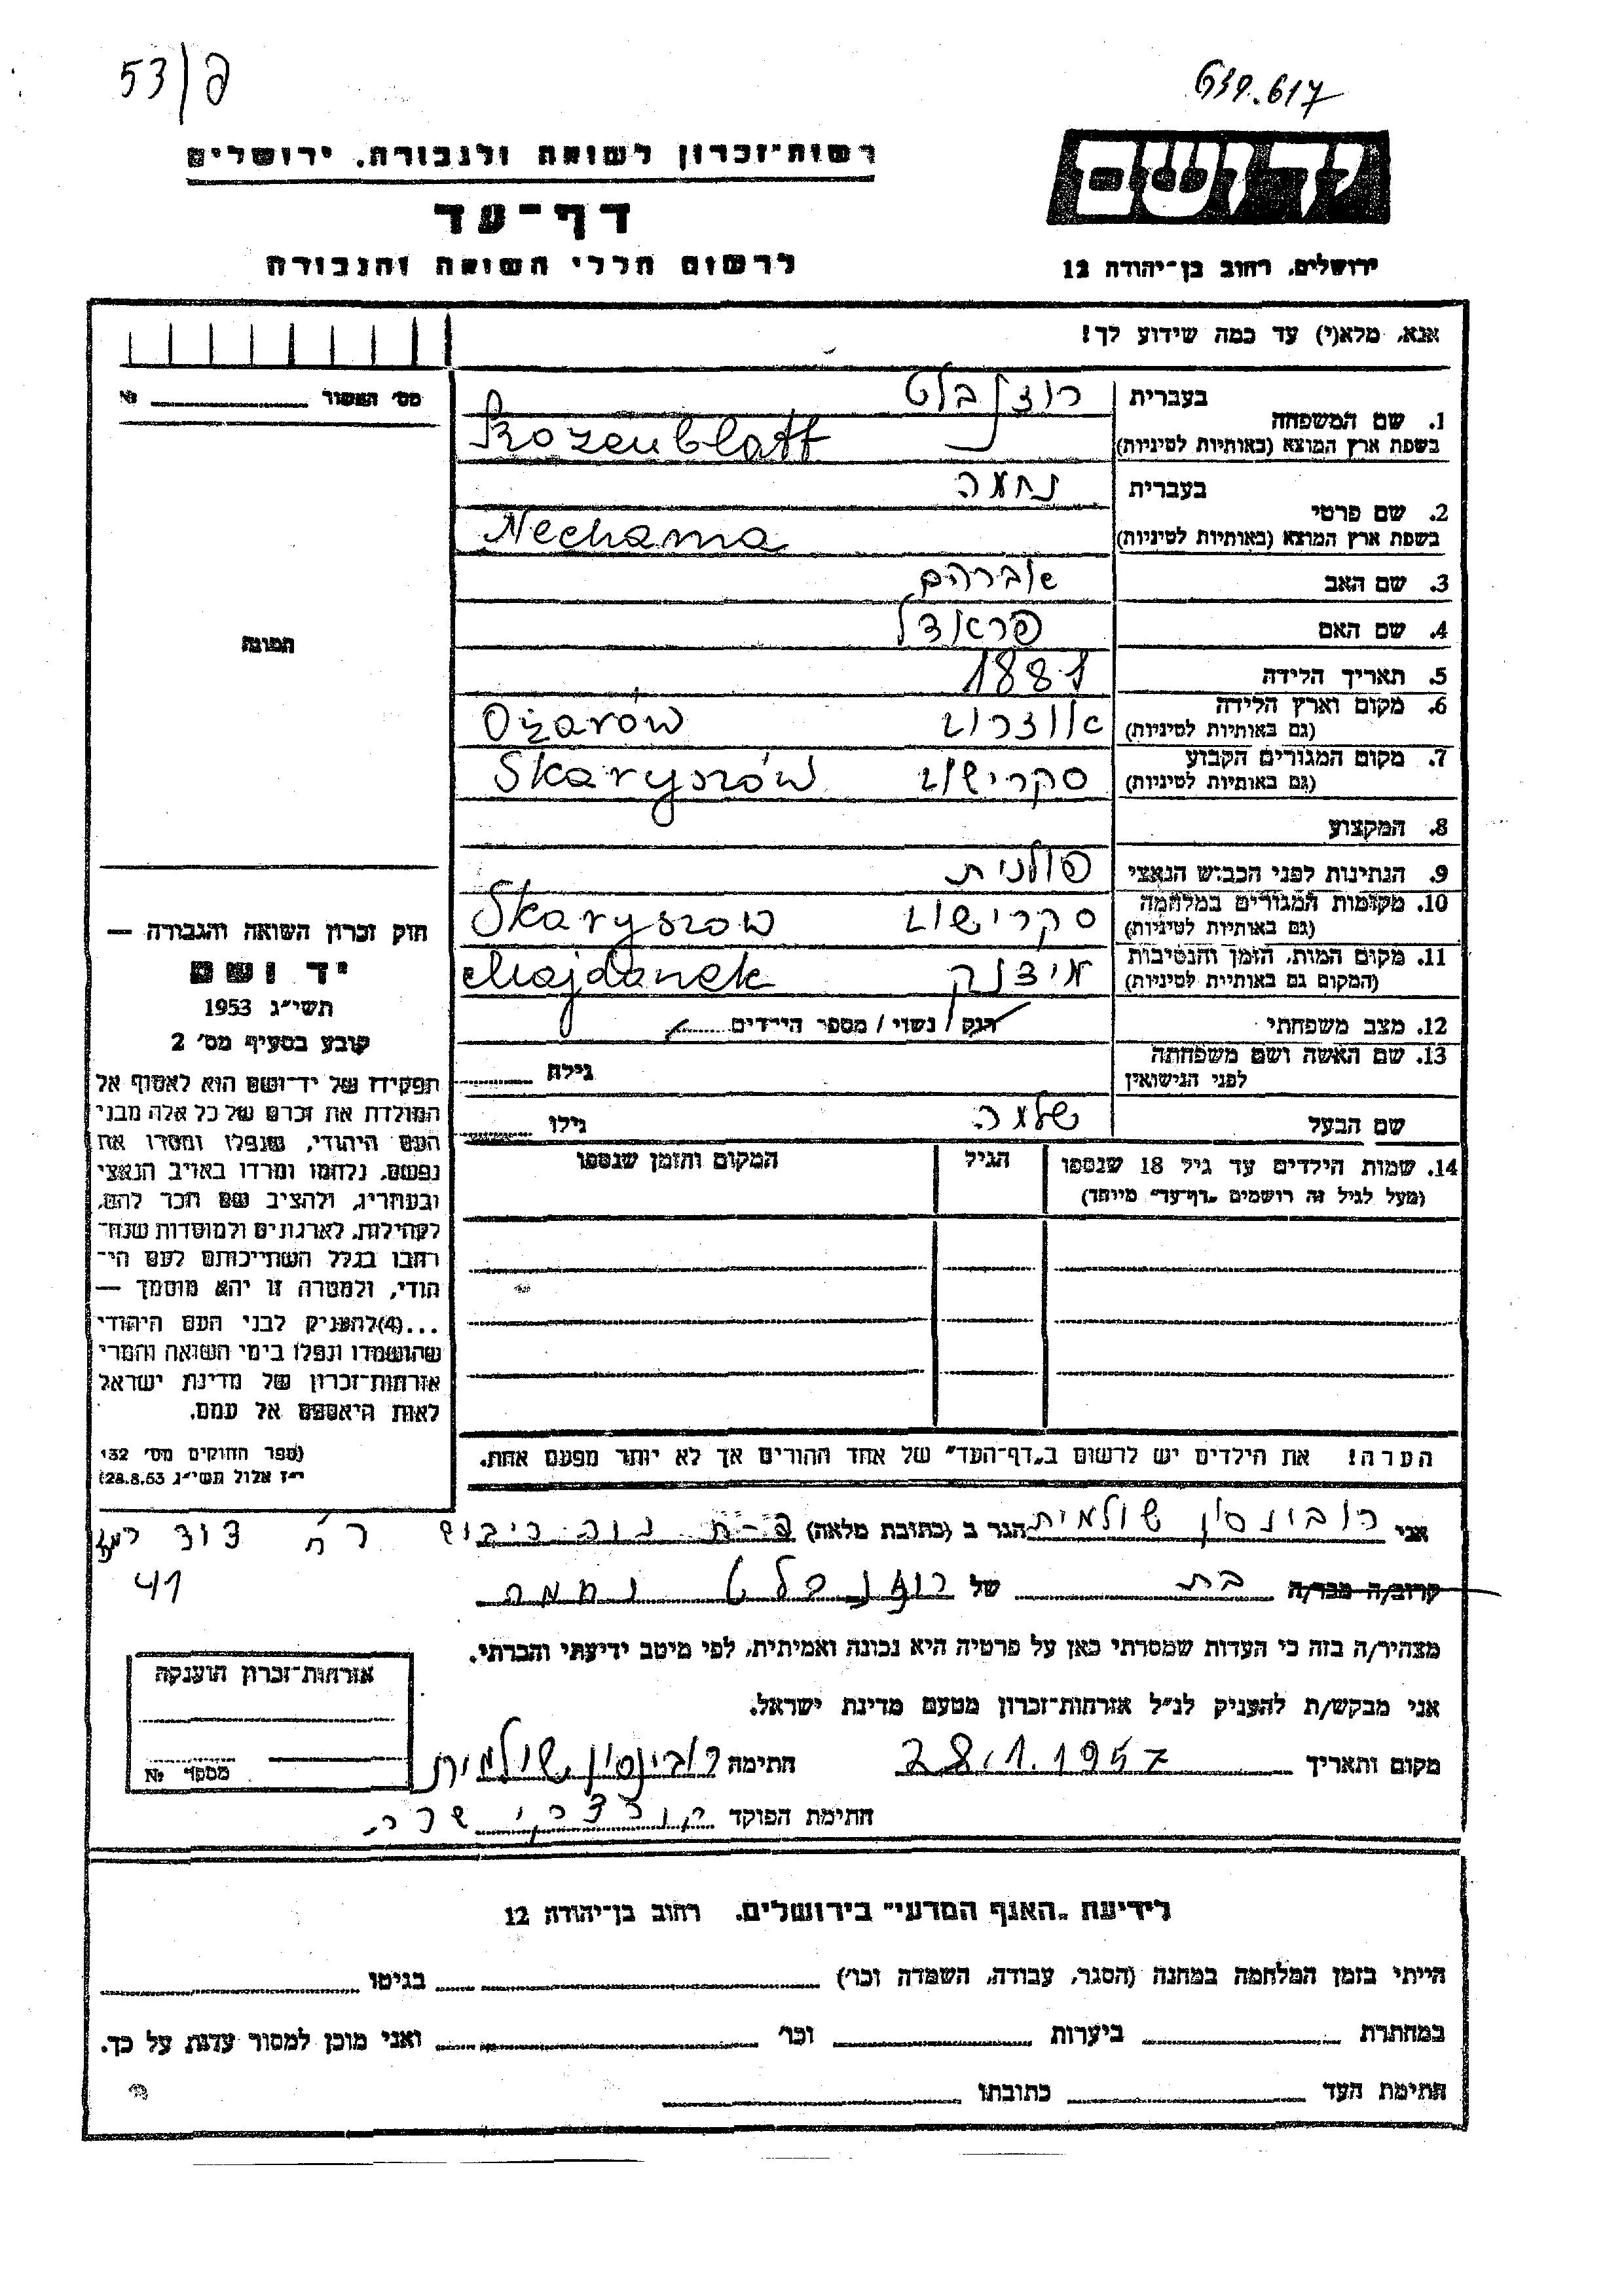 53/פ
639.617
יד ושם
ירושלים, רחוב בן־יהודה 12
רשות־זכרון לשואה ולגבורה, ירושלים
דף־עד
לרשום חללי השואה והגבורה
אנא, מלא(י) עד כמה שידוע לך!
מס' האשור № 
1. שם המשפחה
בעברית רוזנבלט
בשפת ארץ המוצא (באותיות לטיניות) Rozenblatt
2. שם פרטי
בעברית נחמה
בשפת ארץ המוצא (באותיות לטיניות) Nechama
3. שם האב אברהם
4. שם האם פראדל
5. תאריך הלידה 1881
6. מקום וארץ הלידה (גם באותיות לטיניות) אוזרוב Ożarów
7. מקום המגורים הקבוע (גם באותיות לטיניות) סקרישוב Skaryszów
8. המקצוע
9. הנתינות לפני הכבוש הנאצי פולנית
10. מקומות המגורים במלחמה (גם באותיות לטיניות) סקרישוב Skaryszow
11. מקום המות, הזמן והנסיבות (המקום גם באותיות לטיניות) מידנק Majdanek
12. מצב משפחתי רוק / נשוי / מספר הילדים
13. שם האשה ושם משפחתה לפני הנישואין גילה
שם הבעל שלמה גילו
14. שמות הילדים עד גיל 18 שנספו
(מעל לגיל זה רושמים „דף־עד" מיוחד)
הגיל
המקום והזמן שנספו
הערה! את הילדים יש לרשום ב„דף־העד" של אחד ההורים אך לא יותר מפעם אחת.
תמונה
חוק זכרון השואה והגבורה —
יד ושם
תשי"ג 1953
קובע בסעיף מס' 2
תפקידו של יד־ושם הוא לאסוף אל
המולדת את זכרם של כל אלה מבני
העם היהודי, שנפלו ומסרו את
נפשם, נלחמו ומרדו באויב הנאצי
ובעוזריו, ולהציב שם וזכר להם,
לקהילות, לארגונים ולמוסדות שנח־
רבו בגלל השתייכותם לעם הי־
הודי, ולמטרה זו יהא מוסמך —
...(4)להעניק לבני העם היהודי
שהושמדו ונפלו בימי השואה והמרי
אזרחות־זכרון של מדינת ישראל
לאות היאספם אל עמם.
(ספר החוקים מס' 132
י"ז אלול תשי"ג 28.8.53)
אני רובינסון שולמית הגר ב (כתובת מלאה) פ-ת נוה
41
קרוב/ה מכר/ה בת של רוזנבלט נחמה
מצהיר/ה בזה כי העדות שמסרתי כאן על פרטיה היא נכונה ואמיתית, לפי מיטב ידיעתי והכרתי.
אני מבקש/ת להעניק לנ"ל אזרחות־זכרון מטעם מדינת ישראל.
מקום ותאריך 28.1.1957 חתימה רובינסון שולמית
חתימת הפוקד שרה
אזרחות־זכרון הוענקה
מספר №
לידיעת „האגף המדעי" בירושלים, רחוב בן־יהודה 12
הייתי בזמן המלחמה במחנה (הסגר, עבודה, השמדה וכו') בגיטו
במחתרת ביערות וכו' ואני מוכן למסור עדות על כך.
חתימת העד כתובתו